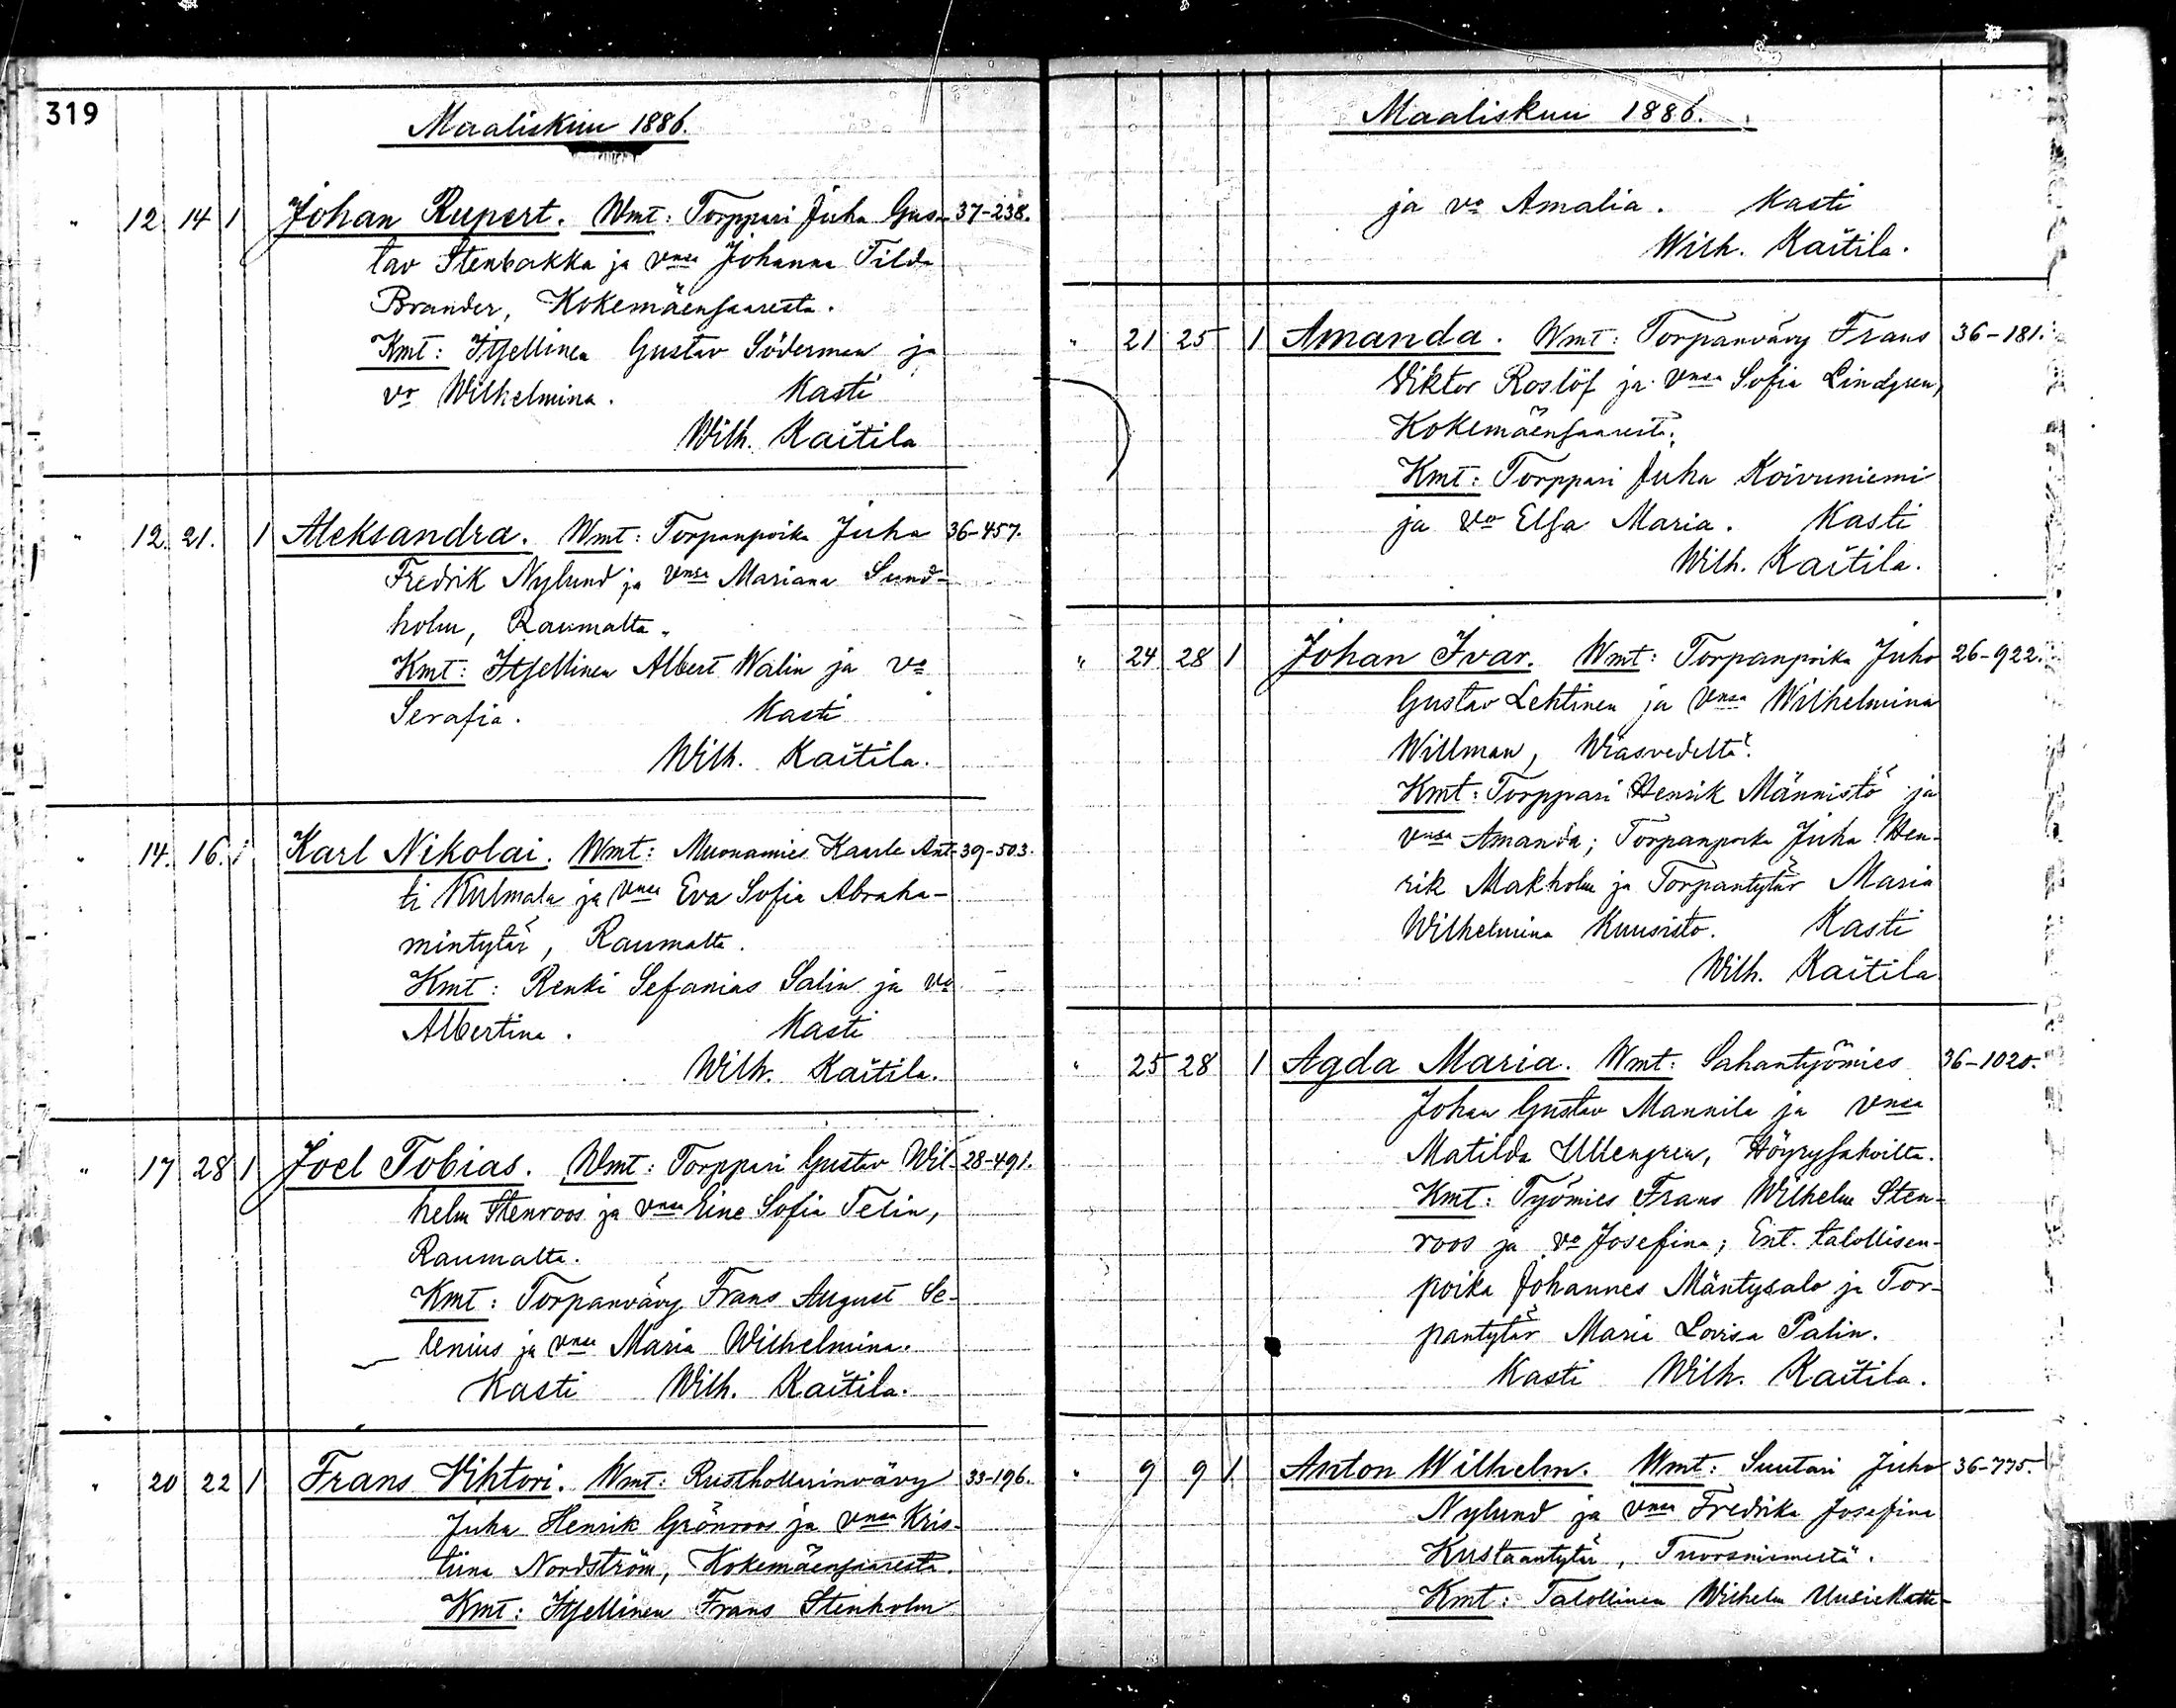 319
Maaliskuu 1886.
" 12 14 1 Johan Rupert. Wmt: Torppari Juha Gus- 37-238.
tav Stenbakka ja vnsa Johanna Tilda
Brander, Kokemäensaaresta.
Kmt: Itsellinen Gustav Söderman ja
vo Wilhelmina. Kasti
Wilh. Kaitila
" 12. 21. 1 Aleksandra. Wmt: Torpanpoika Juha 36-457.
Fredrik Nylund ja vnsa Mariana Sund-
holm, Raumalta.
Kmt: Itsellinen Albert Walin ja vo
Serafia. Kasti
Wilh. Kaitila.
" 14. 16. 1 Karl Nikolai. Wmt: Muonamies Kaarle Ant- 39-503.
ti Kulmala ja vnsa Eva Sofia Abraha-
mintytär, Raumalta.
Kmt: Renki Sefanias Salin ja vo
Albertina. Kasti
Wilh. Kaitila.
" 17 28 1 Joel Tobias. Wmt: Torppari Gustav Wil- 28-491.
helm Stenroos ja vnsa Eine Sofia Telin,
Raumalta.
Kmt: Torpanvävy Frans August Se-
lenius ja vnsa Maria Wilhelmina.
Kasti Wilh. Kaitila.
" 20 22 1 Frans Vihtori. Wmt: Rusthollarinvävy 33-196.
Juha Henrik Grönroos ja vnsa Kris-
tiina Nordström, Kokemäensaaresta.
Kmt: Itsellinen Frans Stenholm
Maaliskuu 1886.
ja vo Amalia. Kasti
Wilh. Kaitila.
" 21 25 1 Amanda. Wmt: Torpanvävy Frans 36-181.
Viktor Roslöf ja vnsa Sofia Lindgren,
Kokemäensaaresta.
Kmt: Torppari Juha Koivuniemi
ja vo Elsa Maria. Kasti
Wilh. Kaitila.
" 24 28 1 Johan Ivar. Wmt: Torpanpoika Juho 26-922.
Gustav Lehtinen ja vnsa Wilhelmina
Willman, Wiasvedeltä.
Kmt: Torppari Henrik Männistö ja
vnsa Amanda; Torpanpoika Juha Hen-
rik Makholm ja Torpantytär Maria
Wilhelmina Kuusisto. Kasti
Wilh. Kaitila
" 25 28 1 Agda Maria. Wmt: Sahantyömies 36-1020.
Johan Gustav Mannila ja vnsa
Matilda Ullengren, Höyrysahoilta.
Kmt: Työmies Frans Wilhelm Sten-
roos ja vo Josefina; Ent. talollisen-
poika Johannes Mäntysalo ja Tor-
pantytär Maria Lovisa Palin.
Kasti Wilh. Kaitila.
" 9 9 1 Anton Wilhelm. Wmt: Suutari Juho 36-775.
Nylund ja vnsa Fredrika Josefina
Kustaantytär, Tuorsniemestä.
Kmt: Talollinen Wilhelm